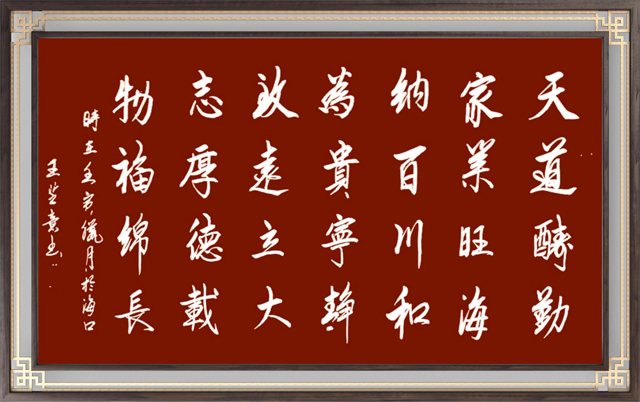 天道酬勤
家業旺海
納百川和
為貴寧靜
致遠立大
志厚德載
物福綿長
時在壬寅臘月於海口